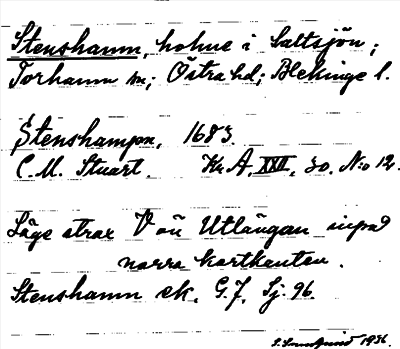 Stenshamn, holme i Saltsjön;
Torhamn sn; Östra hd; Blekinge l.
Stenshampn, 1683.
C. M. Stuart. Kr. A. XXII, 30. N:o 12.
Läge strax V ön Utlängan inpå
norra kartkanten.
Stenshamn ek. G. J. Sj. 96.
1936.